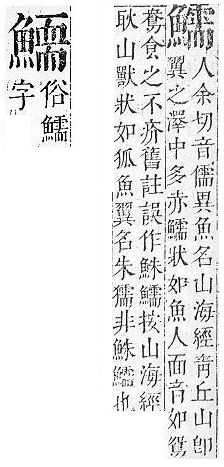 鱬
人余切音儒異魚名山海經靑丘山卽
翼之澤中多赤鱬狀如魚人面音如鴛
鴦食之不疥舊註誤作鮢鱬按山海經
耿山獸狀如狐魚翼名朱獳非鮢鱬也
俗鱬
字